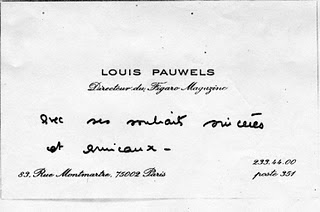 LOUIS PAUWELS
Directeur du Figaro Magazine
Avec ses souhaits sincères
et amicaux -
233.44.00
83, Rue Montmartre, 75002 Paris
poste 351